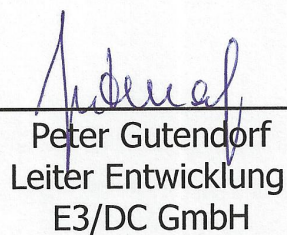 Peter Gutendorf
Leiter Entwicklung
E3/DC GmbH